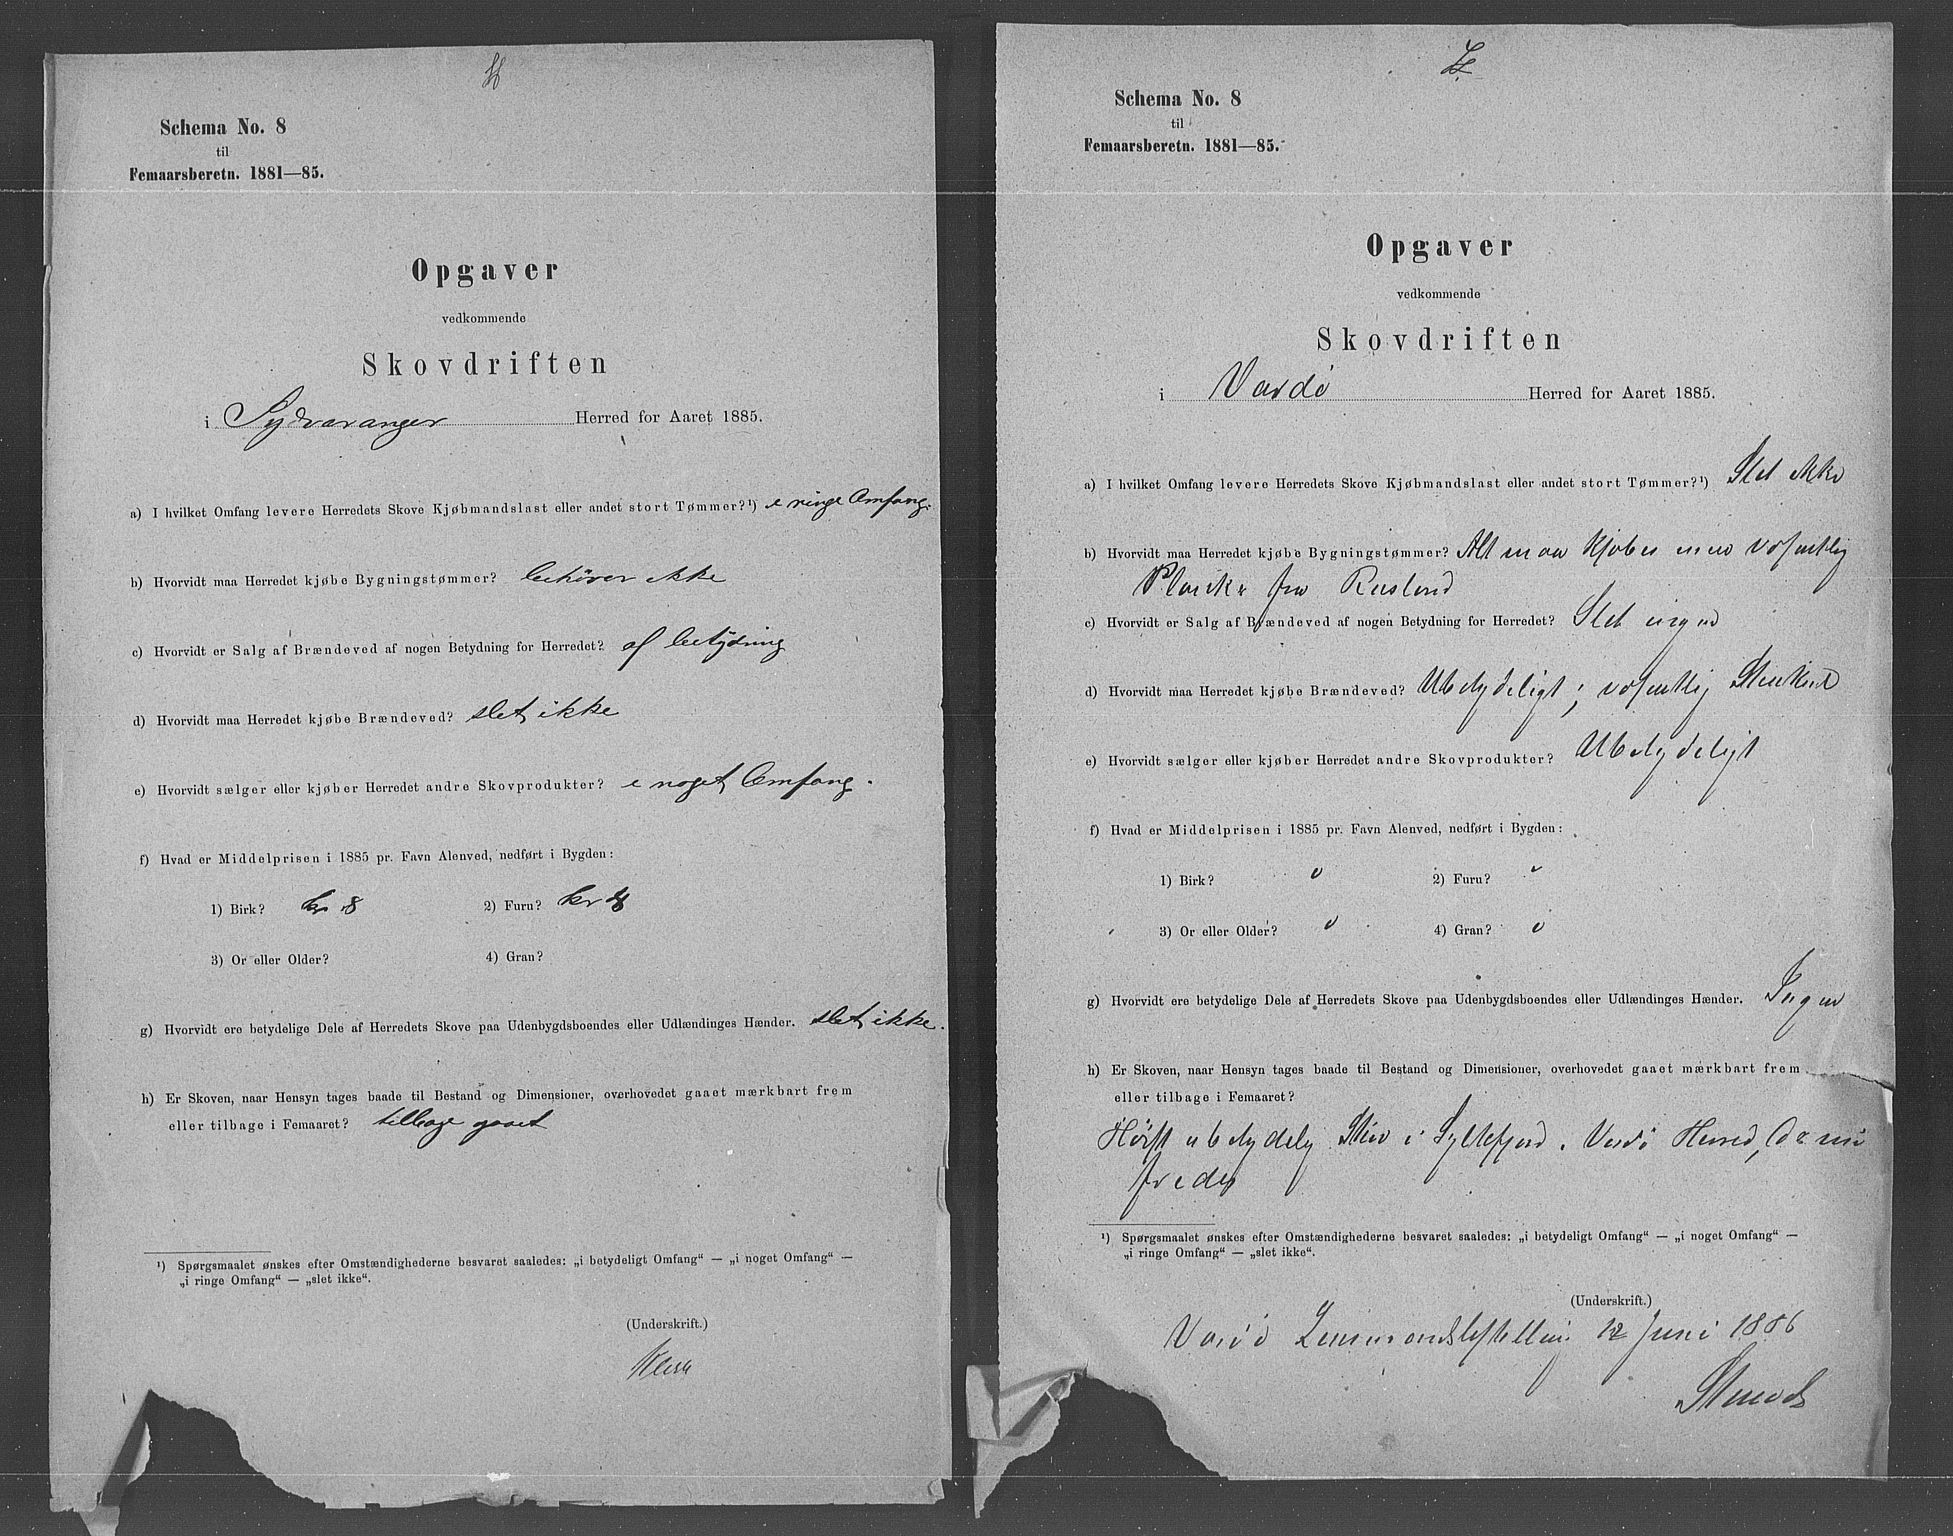 Schema No. 8
til
Femaarsberetn. 1881—85.
Opgaver
vedkommende
Skovdriften
i Sydvaranger Herred for Aaret 1885.
a) I hvilket Omfang levere Herredets Skove Kjøbmandslast eller andet stort Tømmer?¹) i ringe Omfang.
b) Hvorvidt maa Herredet kjøbe Bygningstømmer? behöver ikke
c) Hvorvidt er Salg af Brændeved af nogen Betydning for Herredet? af betydning
d) Hvorvidt maa Herredet kjøbe Brændeved? slet ikke
e) Hvorvidt sælger eller kjøber Herredet andre Skovprodukter? i noget Omfang.
f) Hvad er Middelprisen i 1885 pr. Favn Alenved, nedført i Bygden:
1) Birk? kr 8 2) Furu? kr
3) Or eller Older? 4) Gran?
g) Hvorvidt ere betydelige Dele af Herredets Skove paa Udenbygdsboendes eller Udlændinges Hænder. slet ikke.
h) Er Skoven, naar Hensyn tages baade til Bestand og Dimensioner, overhovedet gaaet mærkbart frem
eller tilbage i Femaaret? tilbage gaaet
¹) Spørgsmaalet ønskes efter Omstændighederne besvaret saaledes: „i betydeligt Omfang“ — „i noget Omfang“ —
„i ringe Omfang“ — „slet ikke“.
(Underskrift.)
Klerk
Schema No. 8
til
Femaarsberetn. 1881—85.
Opgaver
vedkommende
Skovdriften
i Vardö Herred for Aaret 1885.
a) I hvilket Omfang levere Herredets Skove Kjøbmandslast eller andet stort Tømmer?¹) Slet ikke
b) Hvorvidt maa Herredet kjøbe Bygningstømmer? Alt maa kjöbes men væsentlig
Planker fra Rusland
c) Hvorvidt er Salg af Brændeved af nogen Betydning for Herredet? Slet ingen
d) Hvorvidt maa Herredet kjøbe Brændeved? Ubetydeligt; væsentlig Stenkul
e) Hvorvidt sælger eller kjøber Herredet andre Skovprodukter? Ubetydeligt
f) Hvad er Middelprisen i 1885 pr. Favn Alenved, nedført i Bygden:
1) Birk? 2) Furu?
3) Or eller Older? 4) Gran?
g) Hvorvidt ere betydelige Dele af Herredets Skove paa Udenbygdsboendes eller Udlændinges Hænder. Ingen
h) Er Skoven, naar Hensyn tages baade til Bestand og Dimensioner, overhovedet gaaet mærkbart frem
eller tilbage i Femaaret?
Höist ubetydelig Skov i Syltefjord, Vardö Herred, der nu
fredes
¹) Spørgsmaalet ønskes efter Omstændighederne besvaret saaledes: „i betydeligt Omfang“ — „i noget Omfang“ —
„i ringe Omfang“ — „slet ikke“.
(Underskrift.)
Vardö Lensmandsbestilling 12 Juni 1886